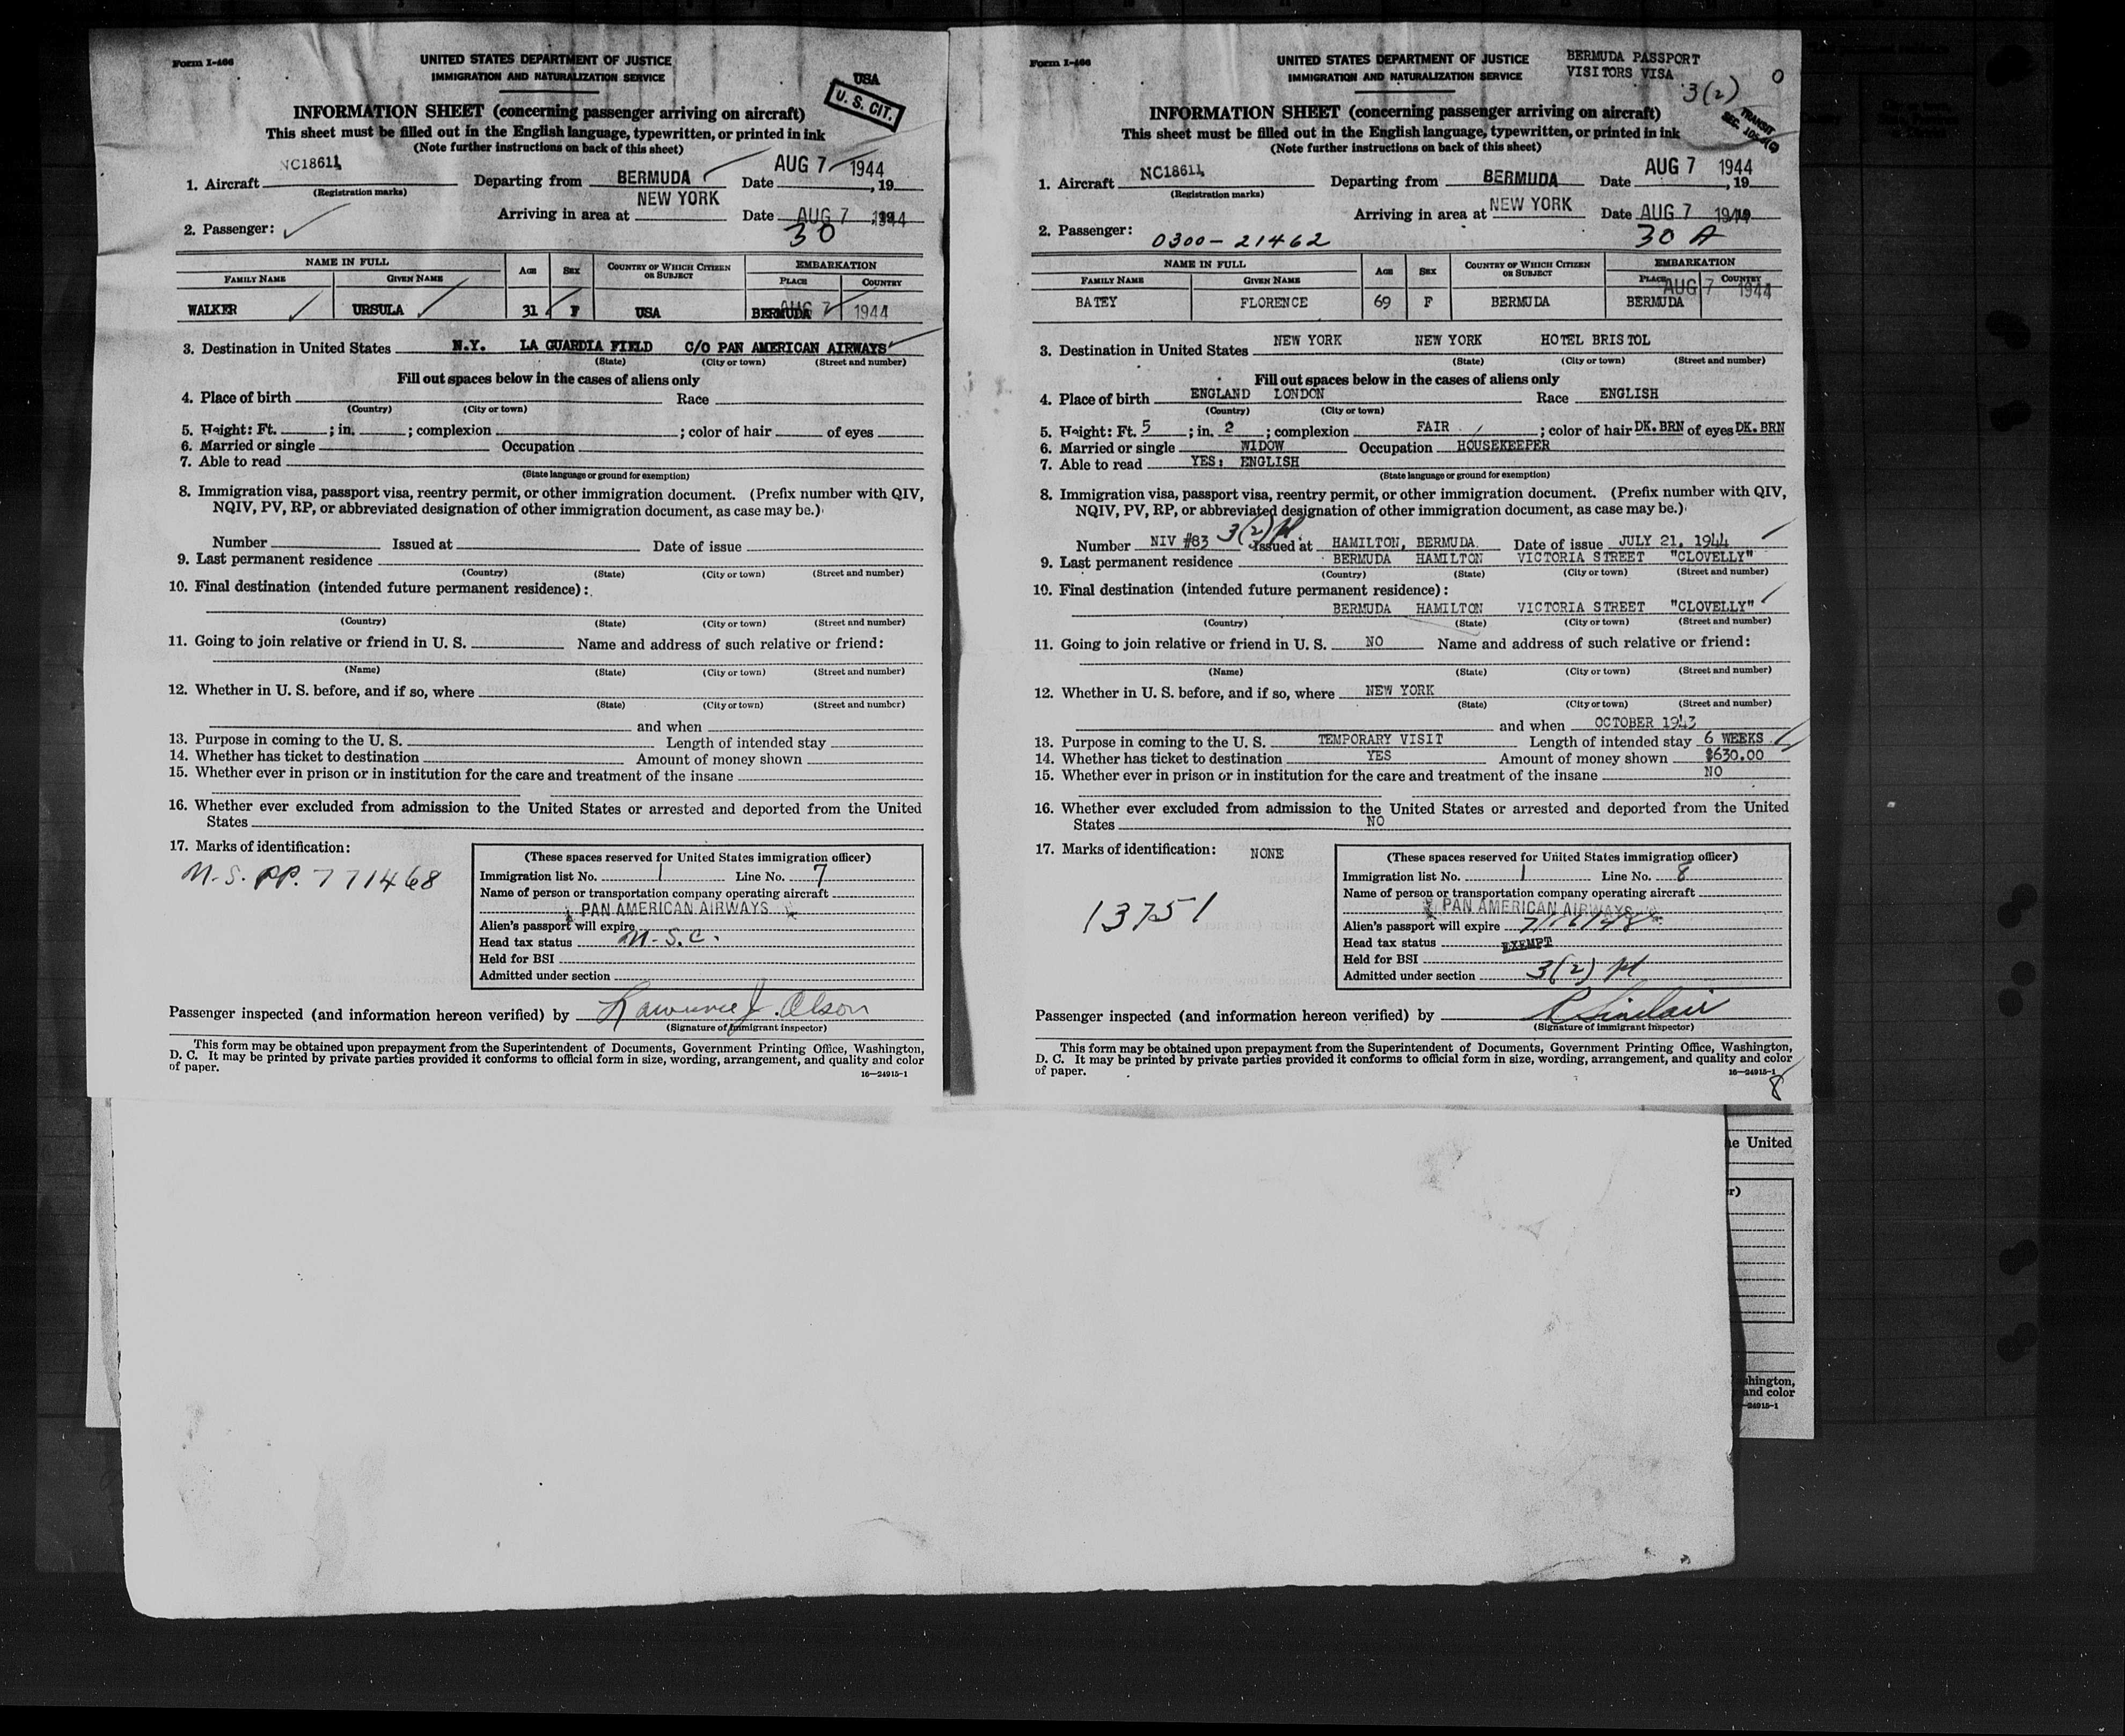 Form I-466
UNITED STATES DEPARTMENT OF JUSTICE
IMMIGRATION AND NATURALIZATION SERVICE
USA
U. S. CIT.
INFORMATION SHEET (concerning passenger arriving on aircraft)
This sheet must be filled out in the English language, typewritten, or printed in ink
(Note further instructions on back of this sheet)
1. Aircraft NC18611 Departing from BERMUDA Date AUG 7 1944, 19
(Registration marks)
Arriving in area at NEW YORK Date AUG 7 1944
2. Passenger: 30
NAME IN FULL AGE SEX COUNTRY OF WHICH CITIZEN OR SUBJECT EMBARKATION
FAMILY NAME GIVEN NAME PLACE COUNTRY
WALKER URSULA 31 F USA BERMUDA AUG 7 1944
3. Destination in United States N.Y. LA GUARDIA FIELD C/O PAN AMERICAN AIRWAYS
(State) (City or town) (Street and number)
Fill out spaces below in the cases of aliens only
4. Place of birth Race
(Country) (City or town)
5. Height: Ft. ; in. ; complexion ; color of hair of eyes
6. Married or single Occupation
7. Able to read
(State language or ground for exemption)
8. Immigration visa, passport visa, reentry permit, or other immigration document. (Prefix number with QIV,
NQIV, PV, RP, or abbreviated designation of other immigration document, as case may be.)
Number Issued at Date of issue
9. Last permanent residence
(Country) (State) (City or town) (Street and number)
10. Final destination (intended future permanent residence):
(Country) (State) (City or town) (Street and number)
11. Going to join relative or friend in U. S. Name and address of such relative or friend:
(Name) (State) (City or town) (Street and number)
12. Whether in U. S. before, and if so, where
(State) (City or town) (Street and number)
and when
13. Purpose in coming to the U. S. Length of intended stay
14. Whether has ticket to destination Amount of money shown
15. Whether ever in prison or in institution for the care and treatment of the insane
16. Whether ever excluded from admission to the United States or arrested and deported from the United
States
17. Marks of identification:
U.S. PP. 771468
(These spaces reserved for United States immigration officer)
Immigration list No. 1 Line No. 7
Name of person or transportation company operating aircraft
PAN AMERICAN AIRWAYS
Alien's passport will expire
Head tax status U.S.C.
Held for BSI
Admitted under section
Passenger inspected (and information hereon verified) by Lawrence J. Olson
(Signature of immigrant inspector)
This form may be obtained upon prepayment from the Superintendent of Documents, Government Printing Office, Washington,
D. C. It may be printed by private parties provided it conforms to official form in size, wording, arrangement, and quality and color
of paper.
16—24915-1
Form I-466
UNITED STATES DEPARTMENT OF JUSTICE
IMMIGRATION AND NATURALIZATION SERVICE
BERMUDA PASSPORT
VISITORS VISA
3(2)
0
TRANSIT
INFORMATION SHEET (concerning passenger arriving on aircraft)
This sheet must be filled out in the English language, typewritten, or printed in ink
(Note further instructions on back of this sheet)
1. Aircraft NC18611 Departing from BERMUDA Date AUG 7 1944, 19
(Registration marks)
Arriving in area at NEW YORK Date AUG 7 1944
2. Passenger: 0300-21462 30 A
NAME IN FULL AGE SEX COUNTRY OF WHICH CITIZEN OR SUBJECT EMBARKATION
FAMILY NAME GIVEN NAME PLACE COUNTRY
AUG 7 1944
BATEY FLORENCE 69 F BERMUDA BERMUDA
3. Destination in United States NEW YORK NEW YORK HOTEL BRISTOL
(State) (City or town) (Street and number)
Fill out spaces below in the cases of aliens only
4. Place of birth ENGLAND LONDON Race ENGLISH
(Country) (City or town)
5. Height: Ft. 5 ; in. 2 ; complexion FAIR ; color of hair DK.BRN of eyes DK.BRN
6. Married or single WIDOW Occupation HOUSEKEEPER
7. Able to read YES: ENGLISH
(State language or ground for exemption)
8. Immigration visa, passport visa, reentry permit, or other immigration document. (Prefix number with QIV,
NQIV, PV, RP, or abbreviated designation of other immigration document, as case may be.)
Number NIV #83 3(2) Issued at HAMILTON, BERMUDA. Date of issue JULY 21, 1944
9. Last permanent residence BERMUDA HAMILTON VICTORIA STREET "CLOVELLY"
(Country) (State) (City or town) (Street and number)
10. Final destination (intended future permanent residence):
BERMUDA HAMILTON VICTORIA STREET "CLOVELLY"
(Country) (State) (City or town) (Street and number)
11. Going to join relative or friend in U. S. NO Name and address of such relative or friend:
(Name) (State) (City or town) (Street and number)
12. Whether in U. S. before, and if so, where NEW YORK
(State) (City or town) (Street and number)
and when OCTOBER 1943
13. Purpose in coming to the U. S. TEMPORARY VISIT Length of intended stay 6 WEEKS
14. Whether has ticket to destination YES Amount of money shown $630.00
15. Whether ever in prison or in institution for the care and treatment of the insane NO
16. Whether ever excluded from admission to the United States or arrested and deported from the United
States NO
17. Marks of identification: NONE
13751
(These spaces reserved for United States immigration officer)
Immigration list No. 1 Line No. 8
Name of person or transportation company operating aircraft
PAN AMERICAN AIRWAYS
Alien's passport will expire
Head tax status EXEMPT
Held for BSI
Admitted under section 3(2)
Passenger inspected (and information hereon verified) by R Sinclair
(Signature of immigrant inspector)
This form may be obtained upon prepayment from the Superintendent of Documents, Government Printing Office, Washington,
D. C. It may be printed by private parties provided it conforms to official form in size, wording, arrangement, and quality and color
of paper.
16—24915-1
8
he United
r)
shington,
and color
-24915-1